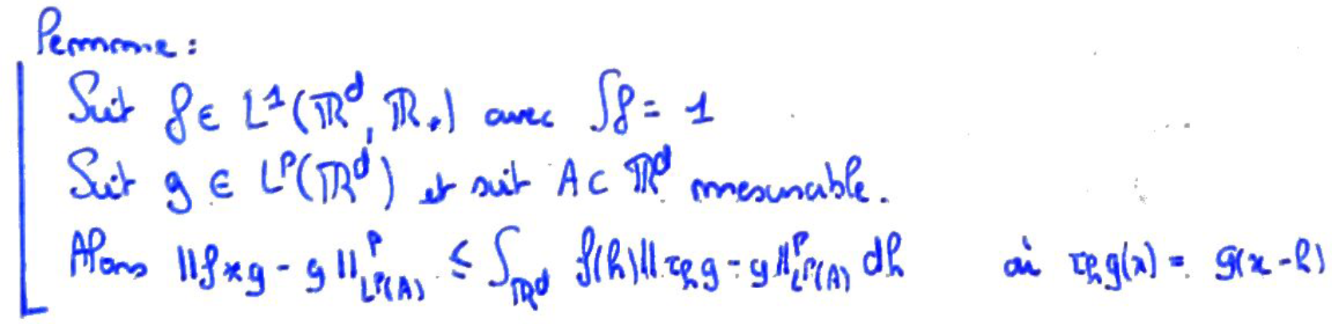 Lemme :
Soit f ∈ L¹(ℝᵈ, ℝ₊) avec ∫f = 1
Soit g ∈ Lᵖ(ℝᵈ) et soit A ⊂ ℝᵈ mesurable.
Alors ||f*g - g||ᵖ_{Lᵖ(A)} ≤ ∫_{ℝᵈ} f(h)||τₕg - g||ᵖ_{Lᵖ(A)} dh où τₕg(x) = g(x-h)